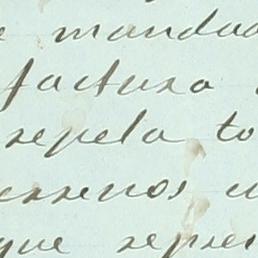 e mandad
factura
repela to
essenos u
que repres